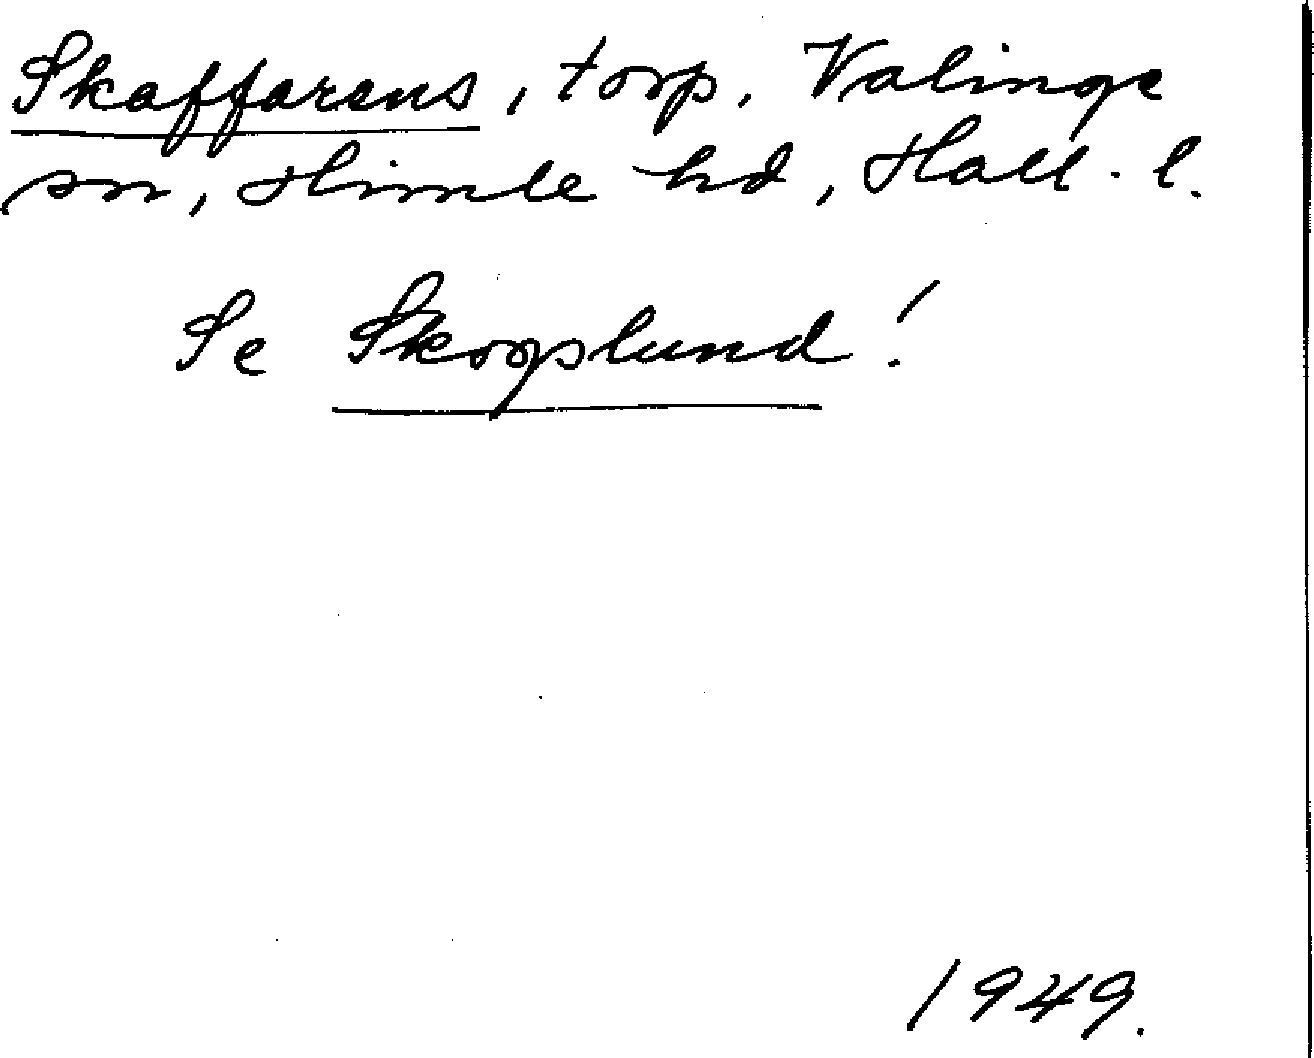 Skaffarens, torp, Valinge
sn, Himle hd, Hall. l.
Se Skogslund!
1949.